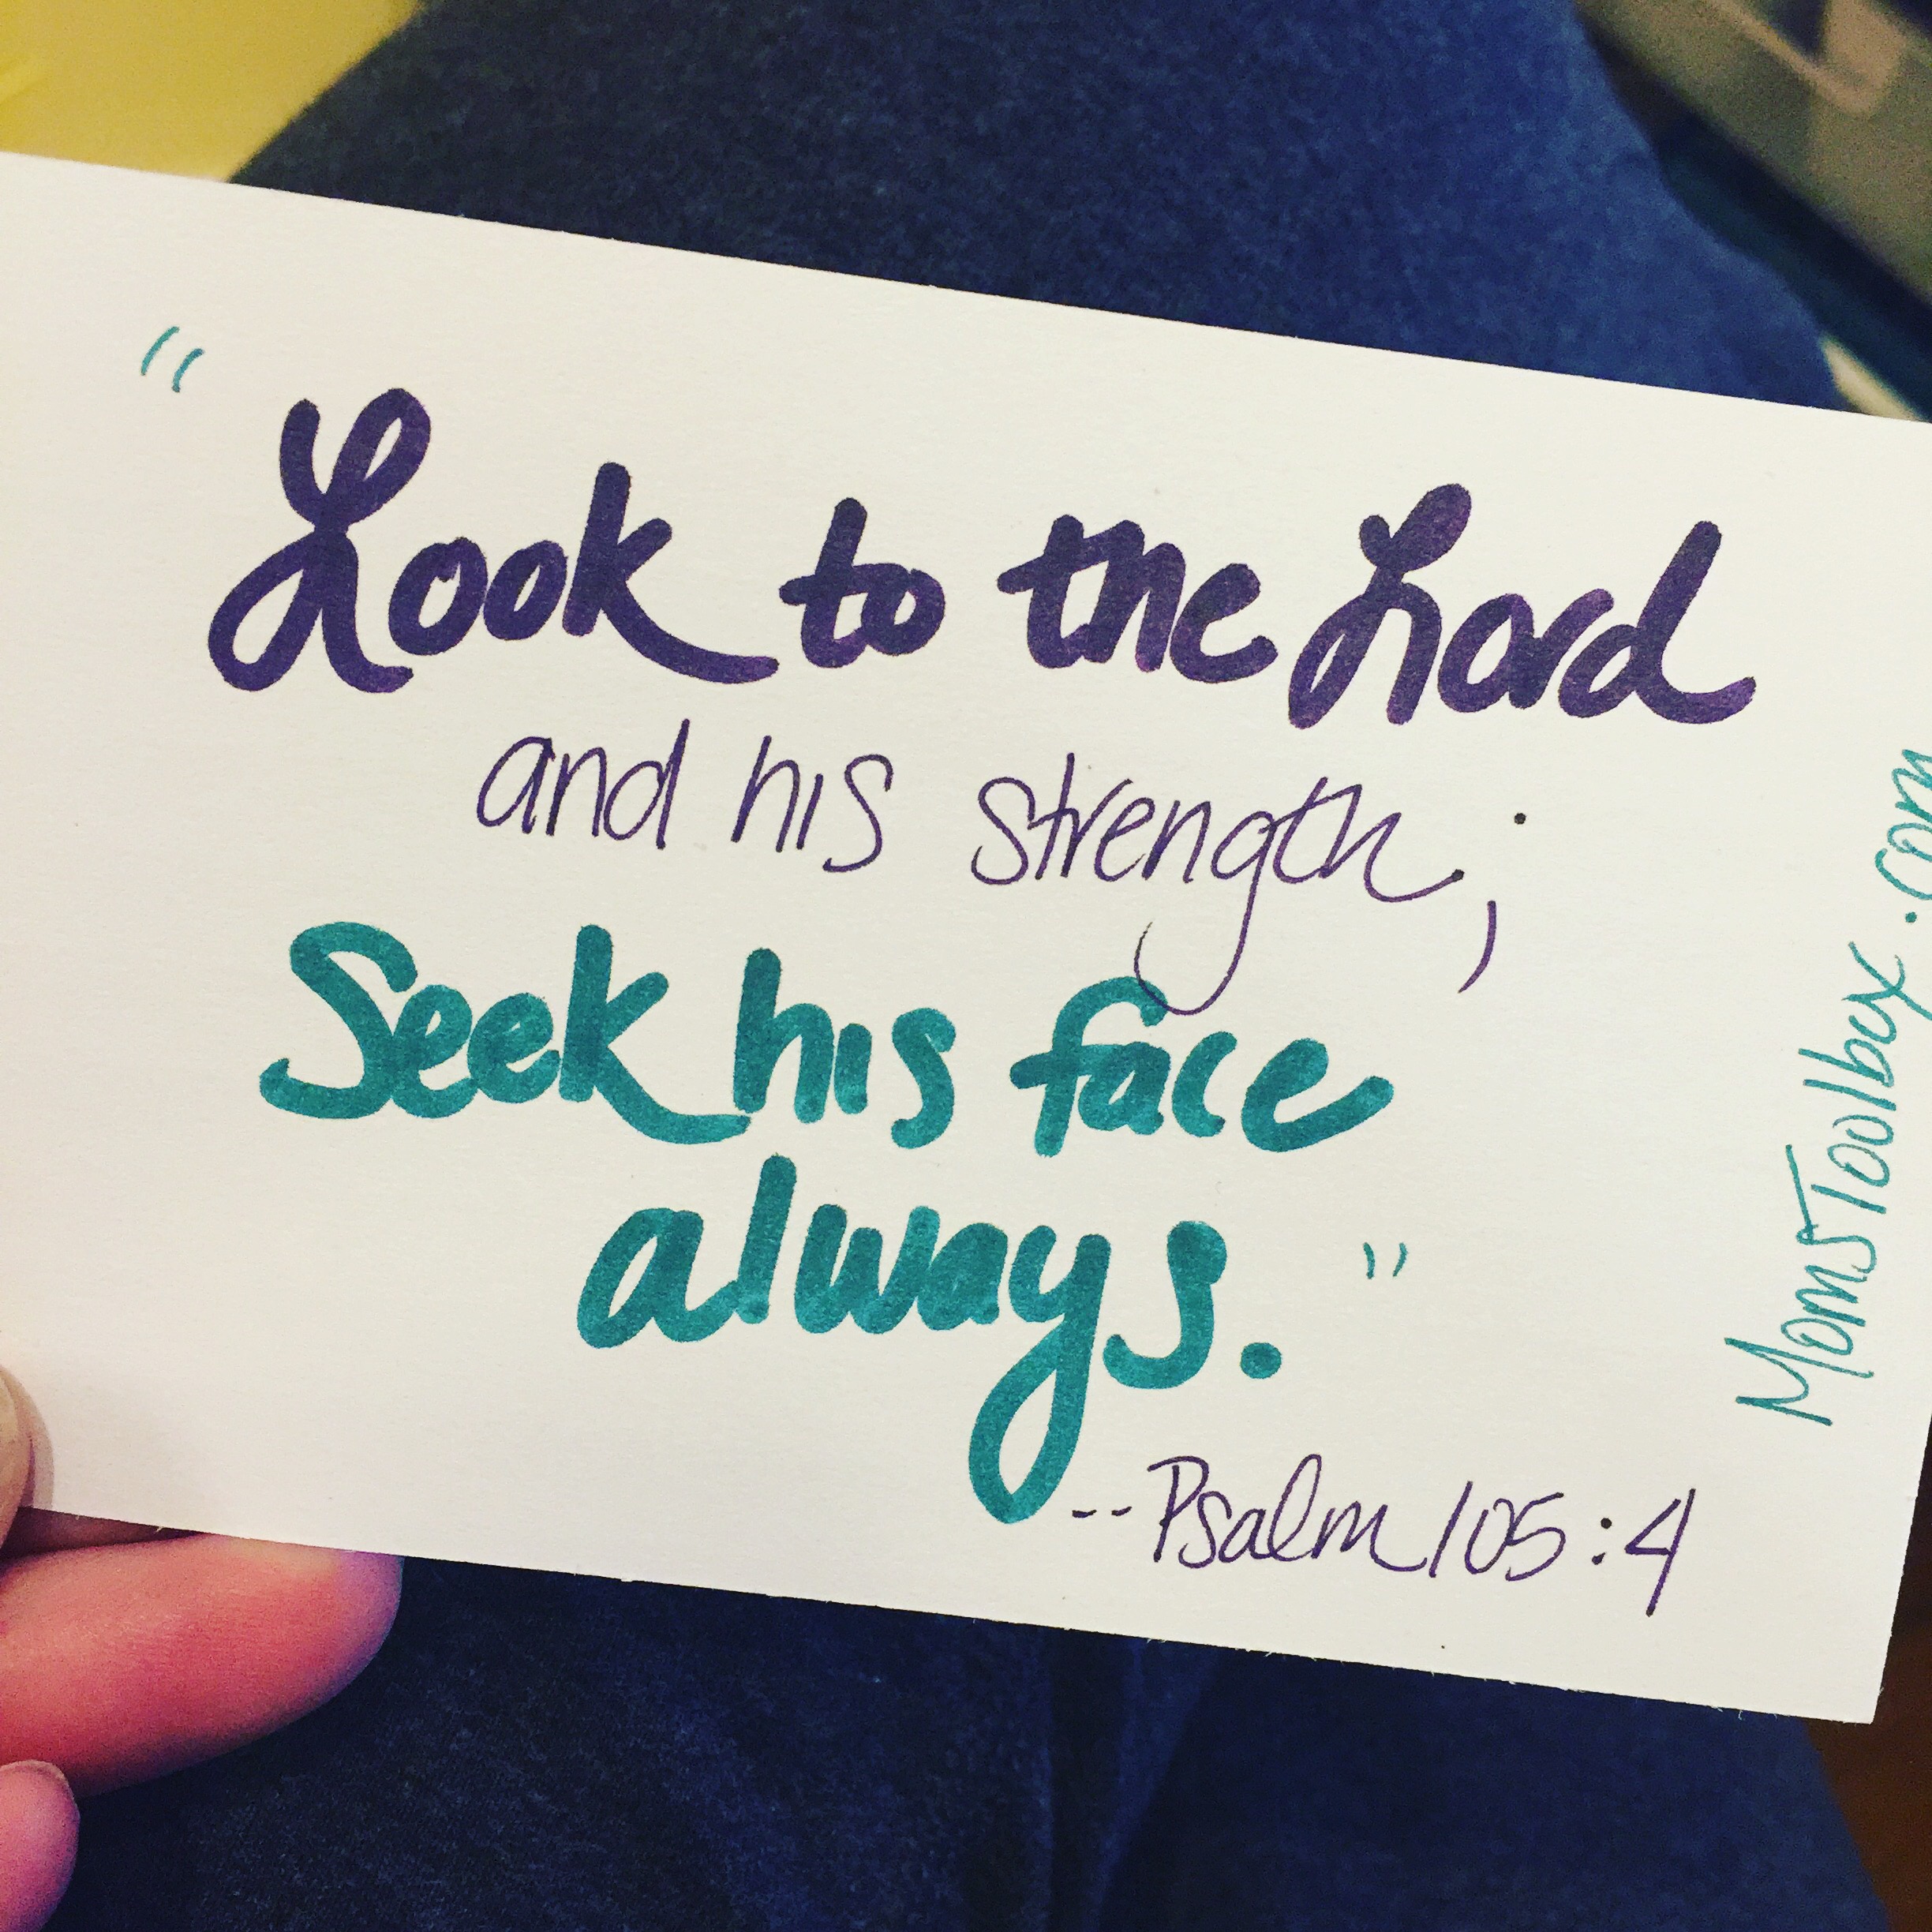 "Look to the Lord
and his strength;
Seek his face
always."
--Psalm 105:4
MomsToolbox.com